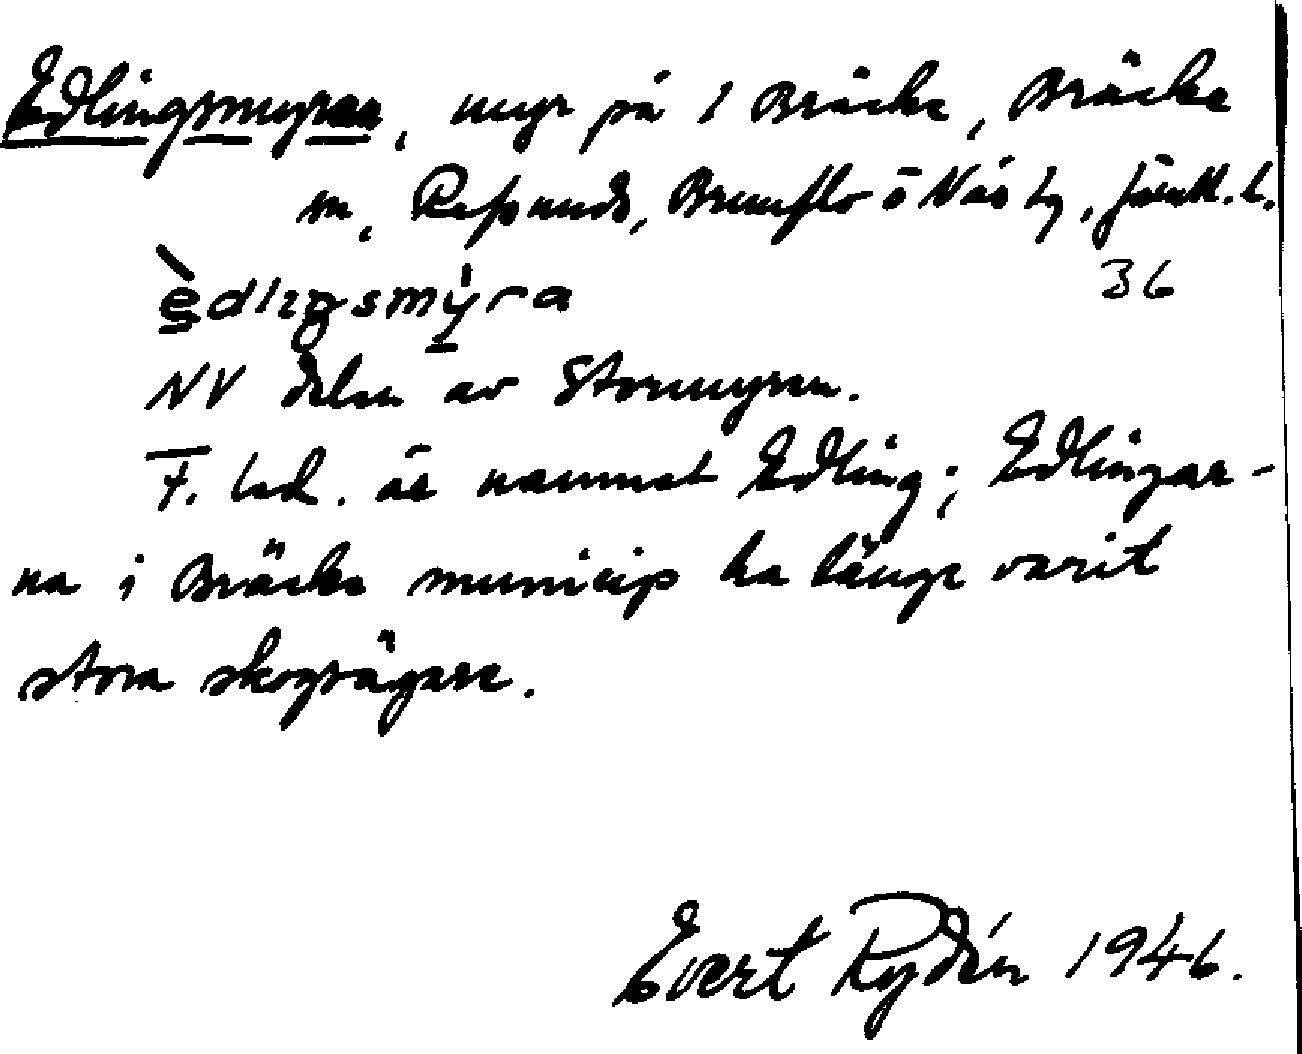 Edlingsmyren, myr på 1 Bräcke, Bräcke
m, Refsunds, Brunflo o Näs tg, Jämtl. l.
ɛ̀dlıŋsmỳra 36
NV delen av Stormyren.
F. led. är namnet Edling; Edlingar-
na i Bräcke municip ha länge varit
stora skogsägare.
Evert Rydén 1946.